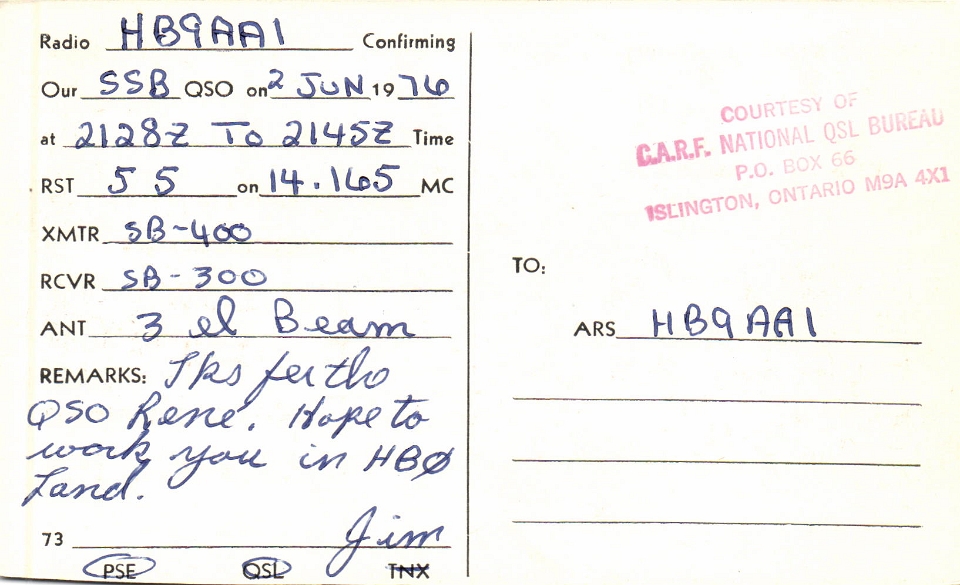 Radio HB9AAI Confirming
Our SSB QSO on 2 JUN 1976
at 2128Z TO 2145Z Time
RST 55 on 14.165 MC
XMTR SB-400
RCVR SB-300
ANT 3 el Beam
REMARKS: Tks fer the
QSO Rene. Hope to
work you in HBØ
Land.
73 Jim
PSE QSL TNX
COURTESY OF
C.A.R.F. NATIONAL QSL BUREAU
P.O. BOX 66
ISLINGTON, ONTARIO M9A 4X1
TO:
ARS HB9AAI